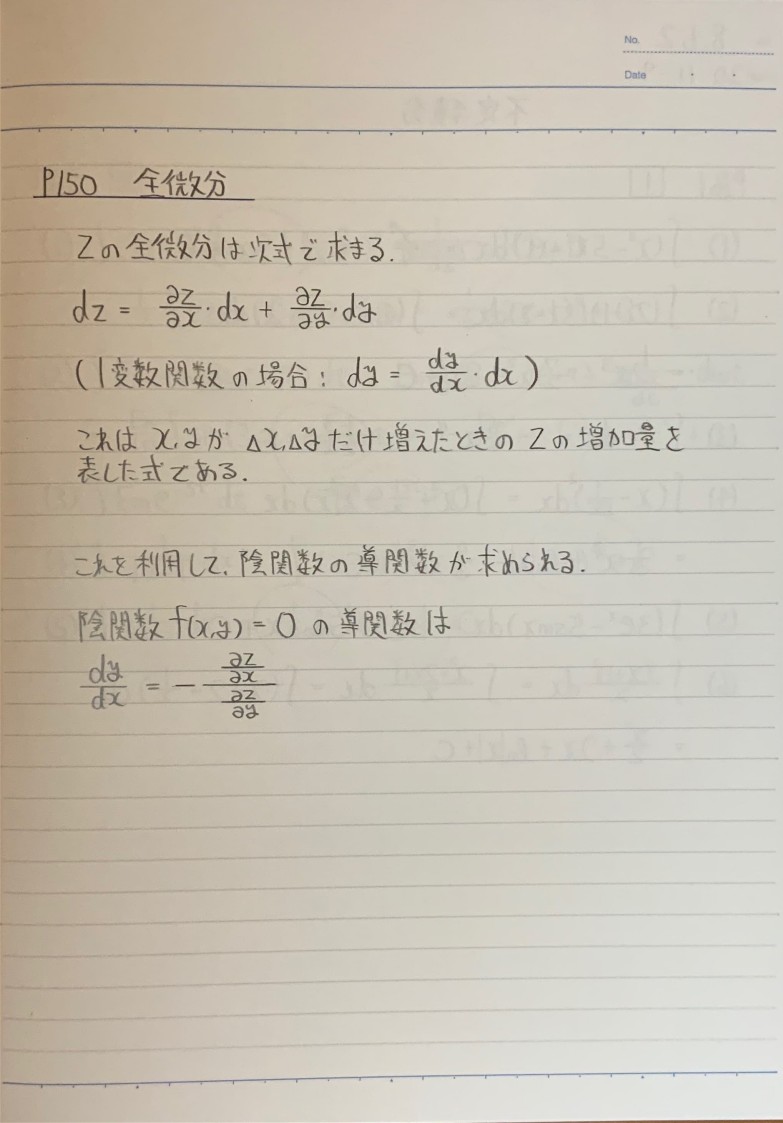 No.
Date
P150 全微分
Zの全微分は次式で求まる.
dz = ∂z/∂x・dx + ∂z/∂y・dy
(1変数関数の場合: dy = dy/dx・dx)
これは x,yが Δx,Δyだけ増えたときのZの増加量を
表した式である.
これを利用して、陰関数の導関数が求められる.
陰関数 f(x,y)=0 の導関数は
dy/dx = - (∂z/∂x)/(∂z/∂y)